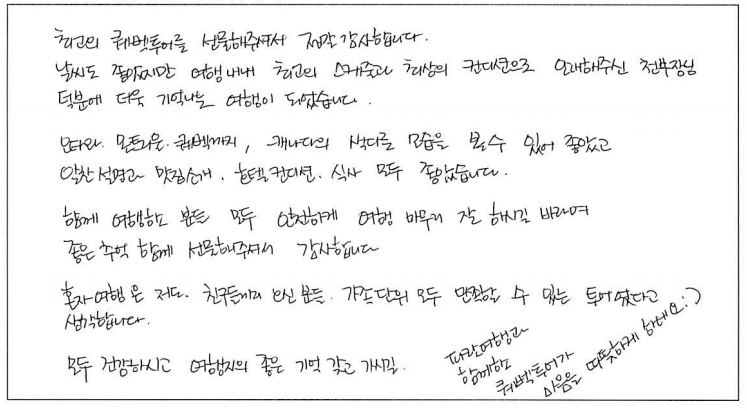 최고의 퀘벡투어를 선물해주셔서 정말 감사합니다.
날씨도 좋았지만 여행내내 최고의 스케쥴과 최상의 컨디션으로 안내해주신 전부장님
덕분에 더욱 기억나는 여행이 되었습니다.
오타와. 몬트리올. 퀘벡까지, 캐나다의 색다른 모습을 볼 수 있어 좋았고
알찬 설명과 맛집소개. 호텔컨디션. 식사 모두 좋았습니다.
함께 여행하신 분들 모두 안전하게 여행 마무리 잘 하시길 바라며
좋은 추억 함께 선물해주셔서 감사합니다
혼자 여행 온 저도. 친구들끼리 오신 분들. 가족단위 모두 만족할 수 있는 투어였다고
생각합니다.
모두 건강하시고 여행지의 좋은 기억 갖고 가시길.
파란여행과
함께한
퀘벡투어가
마음을 따뜻하게 하네요:)